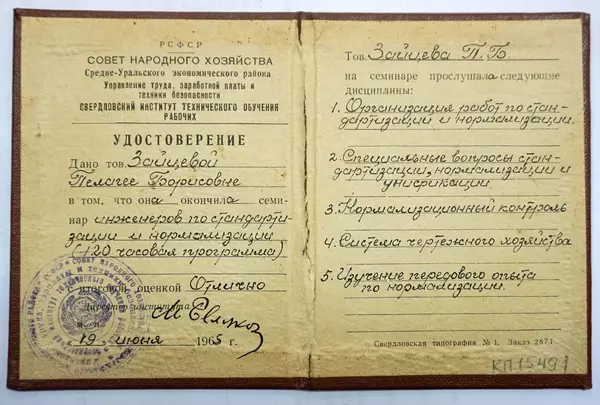 РСФСР
СОВЕТ НАРОДНОГО ХОЗЯЙСТВА
Средне-Уральского экономического района
Управление труда, заработной платы и
техники безопасности
СВЕРДЛОВСКИЙ ИНСТИТУТ ТЕХНИЧЕСКОГО ОБУЧЕНИЯ
РАБОЧИХ
УДОСТОВЕРЕНИЕ
Дано тов. Зайцевой
Пелагее Борисовне
в том, что она окончила семи-
нар инженеров по стандарти-
зации и нормализации
(120 часовая программа)
с итоговой оценкой Отлично
Директор института
19 июня 1965 г.
Тов. Зайцева П. Б.
на семинаре прослушала следующие
дисциплины:
1. Организация работ по стан-
дартизации и нормализации.
2. Специальные вопросы стан-
дартизации, нормализации и
унификации.
3. Нормализационный контроль
4. Система чертежного хозяйства
5. Изучение передового опыта
по нормализации.
Свердловская типография № 1. Заказ 2871
КП15497